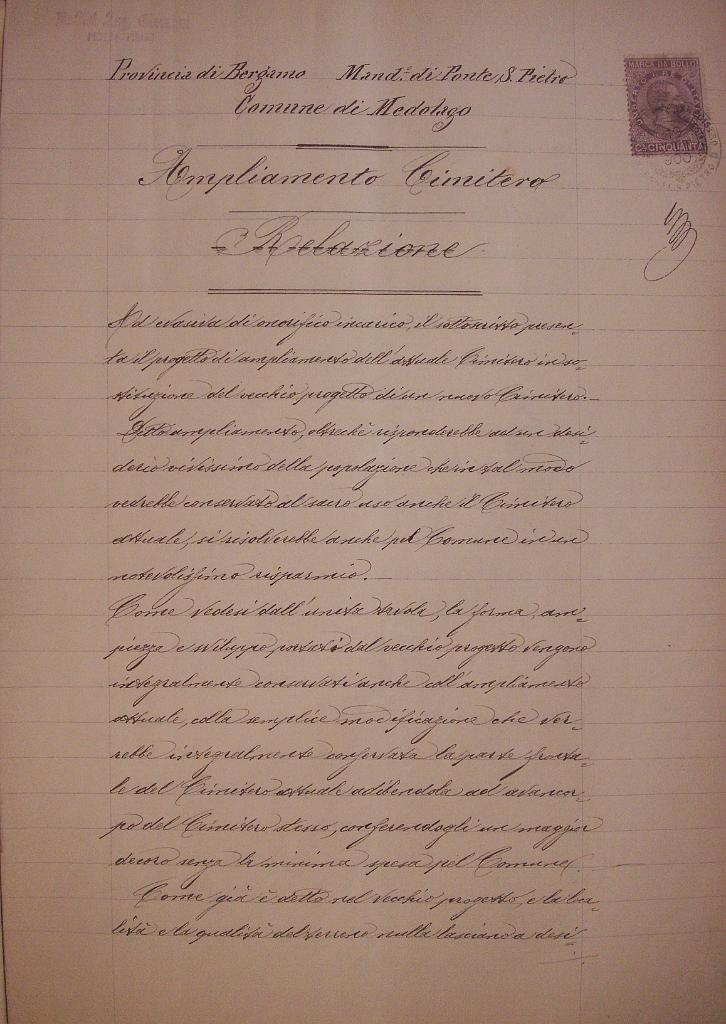 Provincia di Bergamo Mand.º di Ponte S. Pietro
Comune di Medolago
MARCA DA BOLLO
Cⁱ CINQUANTA
Ampliamento Cimitero
Relazione
Ad evasiva di onorifico incarico, il sottoscritto presen-
ta il progetto di ampliamento dell'attuale Cimitero in so-
stituzione del vecchio progetto di un nuovo Cimitero.-
Detto ampliamento, oltrechè risponderebbe ad un desi-
derio vivissimo della popolazione che in tal modo
vedrebbe conservato al sacro uso anche il Cimitero
attuale, si risolverebbe anche pel Comune in un
notevolissimo risparmio.-
Come vedesi dall'unita tavola, la forma, am-
piezza e sviluppo portati dal vecchio progetto vengono
integralmente conservati anche coll'ampliamento
attuale, colla semplice modificazione che ver-
rebbe integralmente conservata la parte fronta-
le del Cimitero attuale adibendola ad avancor-
po del Cimitero stesso, conferendogli un maggior
decoro senza la minima spesa pel Comune.
Come già è detto nel vecchio progetto, e la loca-
lità e la qualità del terreno nulla lasciano a desi-